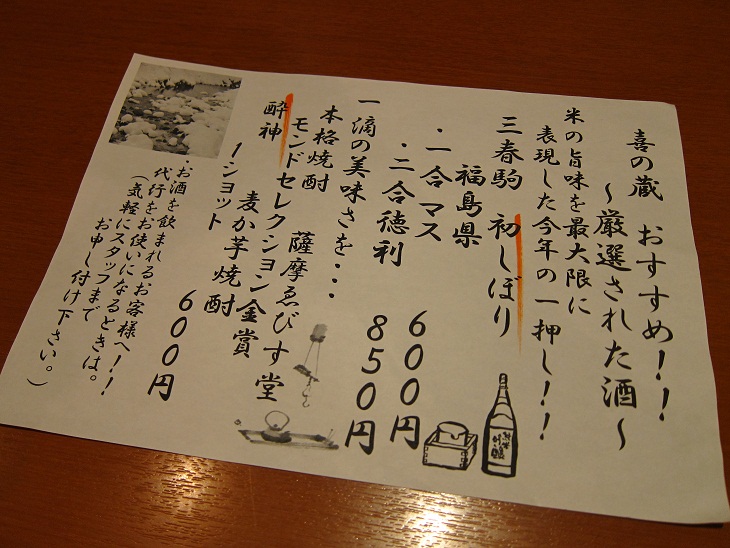 喜の蔵 おすすめ!!
～厳選された酒～
米の旨味を最大限に
表現した今年の一押し!!
三春駒 初しぼり
福島県
・一合マス 600円
・二合徳利 850円
一滴の美味さを・・・
本格焼酎 薩摩ゑびす堂
モンドセレクション金賞
酔神 麦か芋焼酎
1ショット 600円
・お酒を飲まれるお客様へ!!
代行をお使いになるときは。
(気軽にスタッフまで
お申し付け下さい。)